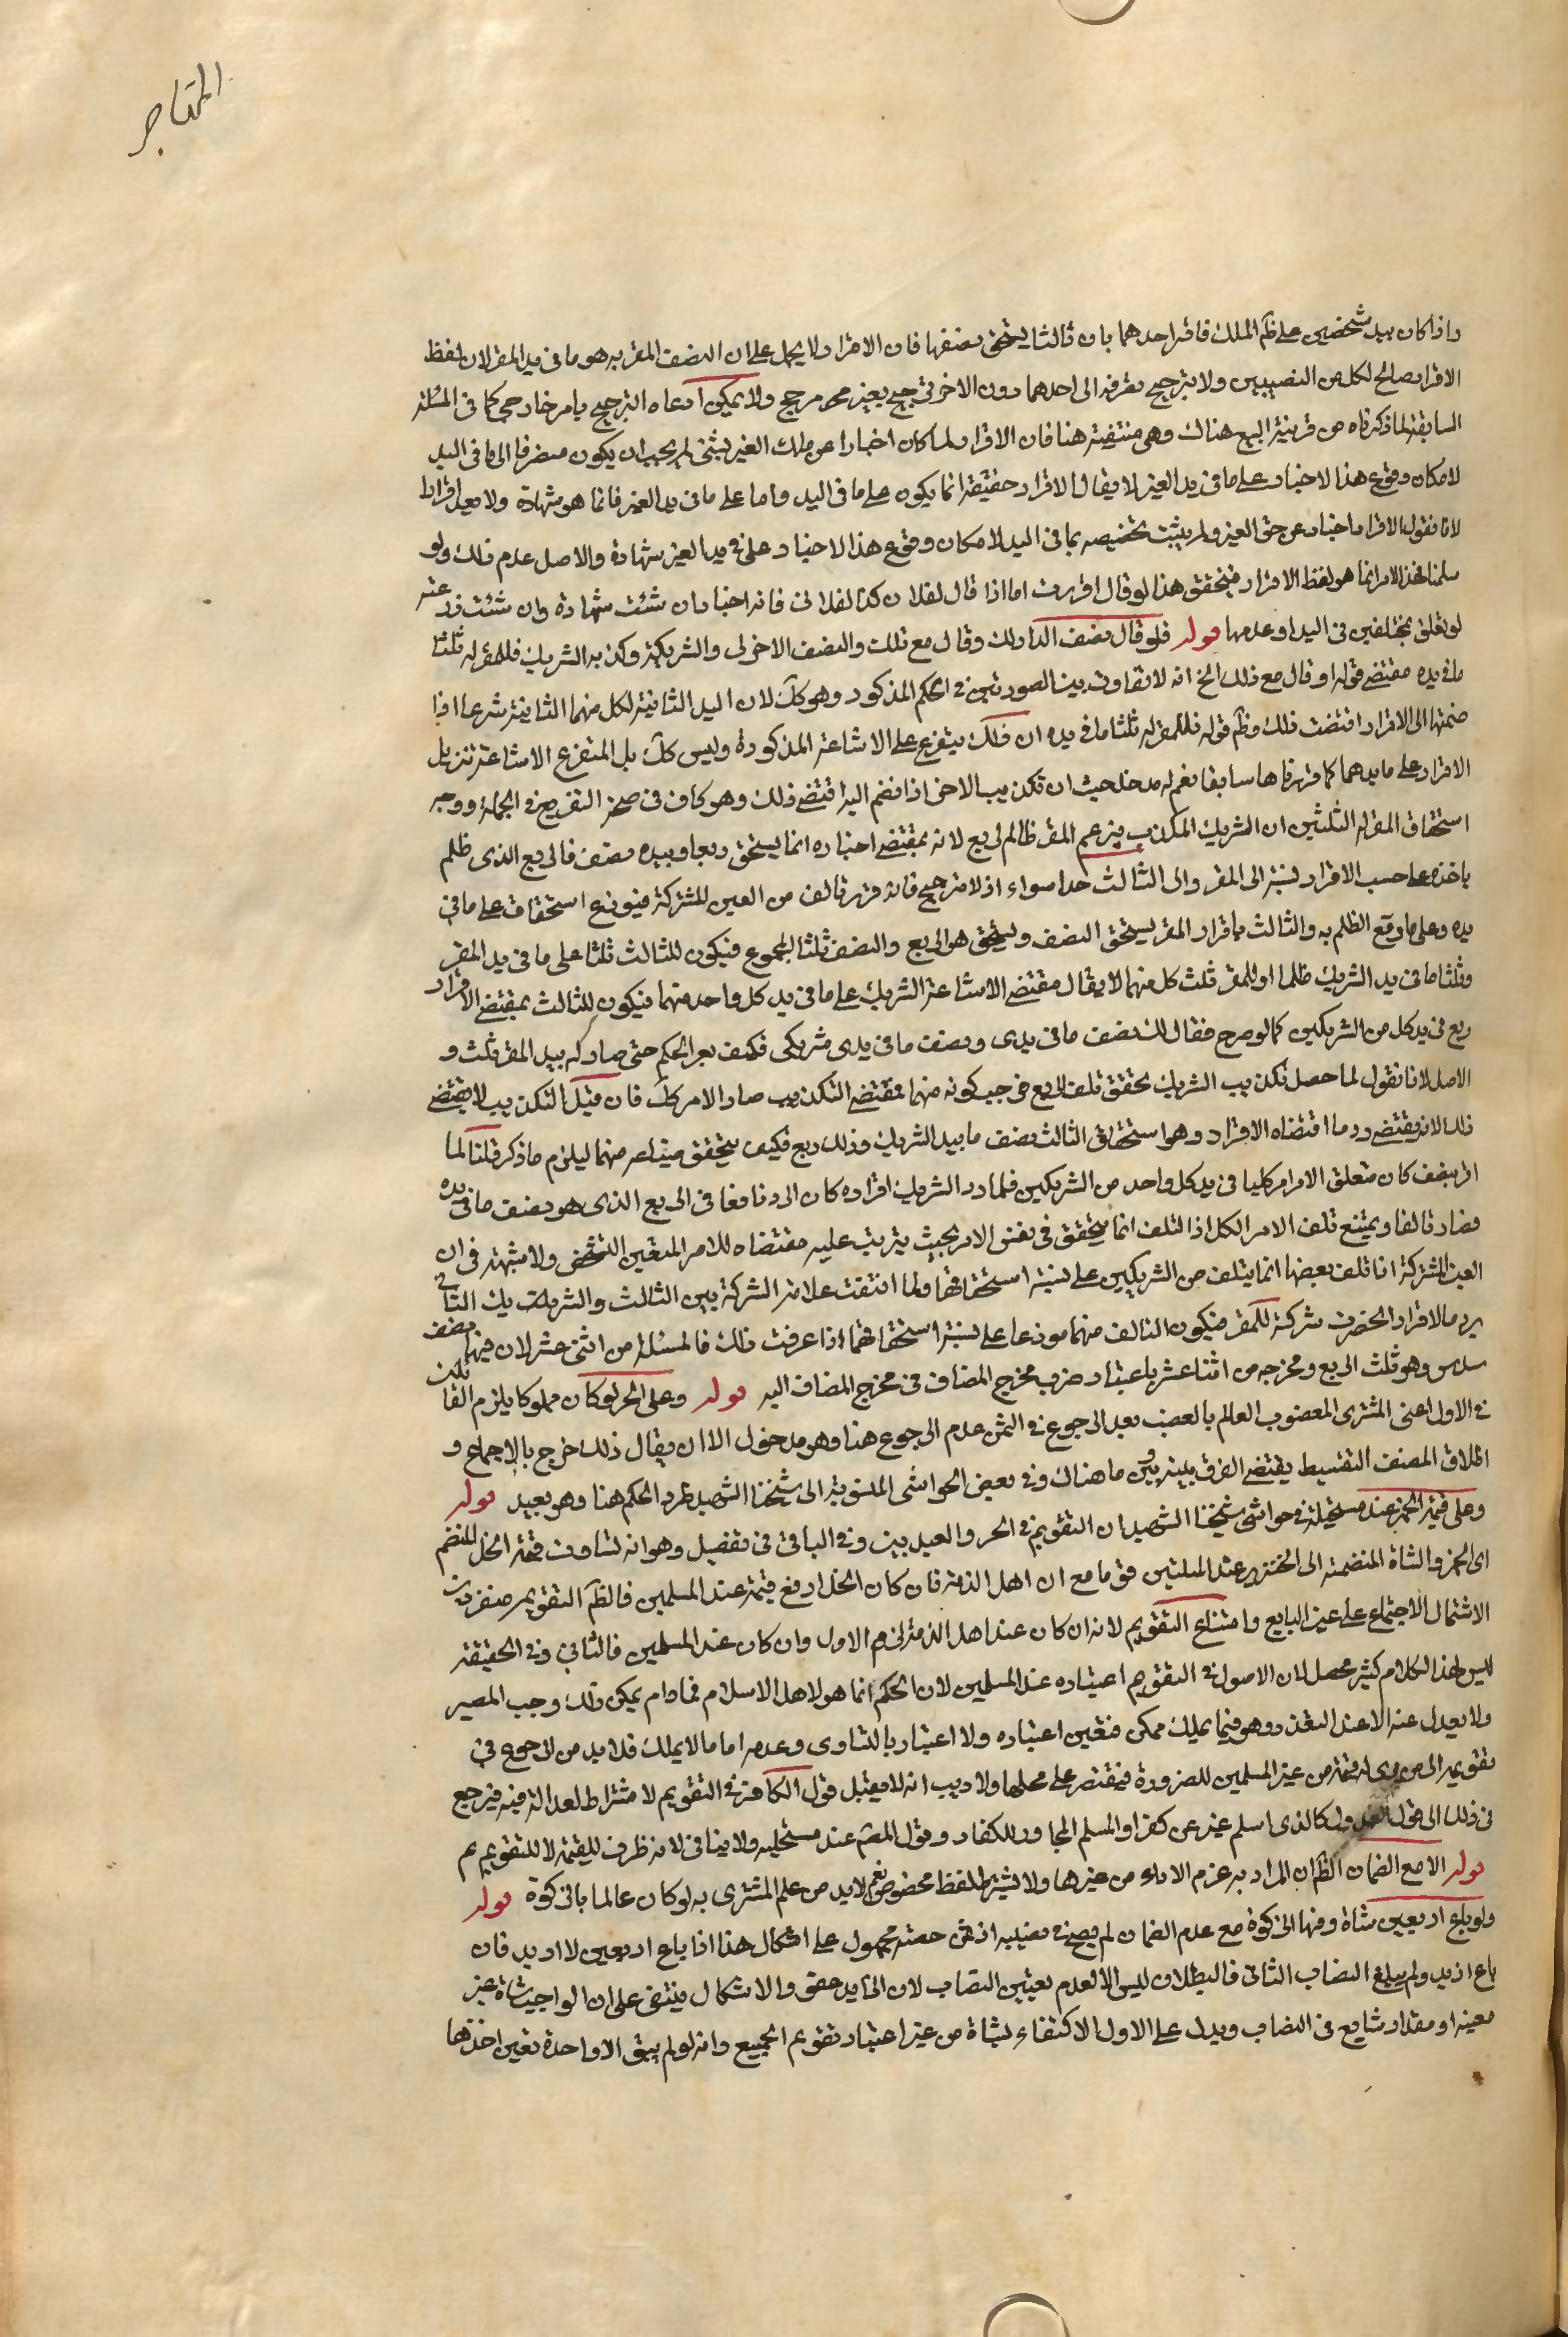 المتاجر
واذا كان بيد شخصين على ظم الملك فاقر احدهما بان ثالثا يستحق نصفها فان الاقرار لا يحمل على ان النصف المقر به هو ما في يد المقر لان لفظ
الاقرار صالح لكل من النصيبين ولا يترجح بقرينة الى احدهما دون الاخر ترجيح بغير مرجح ولا يمكن ادعاه الترجيح بامر خارجي كما في المسئلة
السابقة لما ذكرناه من قرينة البيع هناك وهي منتفية هنا فان الاقرار لما كان اخبارا عن ملك الغير بشئ لم يجب ان يكون منصرفا الى ما في اليد
لامكان وقوع هذا الاخبار على ما في يد الغير لا يقال الاقرار حقيقة انما يكون على ما في اليد واما على ما في يد الغير فانما هو شهادة ولا يعد اقرارا
لانا نقول الاقرار اخبار عن حق الغير ولم يثبت تخصيصه بما في اليد لامكان وقوع هذا الاخبار على في يد الغير شهادة والاصل عدم ذلك ولو
سلمنا فهذا الامر انما هو لفظ الاقرار فيتحقق هذا لو قال اقررت اما اذا قال لفلان كذا لفلان فانه اخبار ان شئت شهادة وان شئت
لو تعلق بمختلفين في اليد وعدمها قوله فلو قال نصف الدار لك وقال مع ثلث والنصف الاخر لي والشريكي وكذبه الشريك فللمقر له ثلثا
ما في يده مقتضى قوله او قال مع ذلك الخ انه لا تفاوت بين الصورتين في الحكم المذكور وهو كك لان اليد الثانية لكل منهما الثانية شرعا اذا
ضمتها الى الاقرار اقتضت ذلك وظم قوله فللمقر له ثلثا ما في يده ان ذلك يتفرع على الاشاعة المذكورة وليس كك بل المتفرع الاشاعة تنزيل
الاقرار على ما بيدهما كما قررناها سابقا نعم له مدخل حيث ان تكذيب الاخر اذا انضم اليه اقتضى ذلك وهو كاف في صحة التفريع في الجملة ووجه
استحقاق المقر له الثلثين ان الشريك المكذب بزعم المقر ظالم لربع لانه بمقتضى اخباره انما يستحق ربعا وبيده نصف فالربع الذي ظلم
باخذه على حسب الاقرار نسبته الى المقر والى الثالث حدا سواء اذ لا مترجح فانه قرر تالف من العين المشتركة فيوزع استحقاق على ما في
يده وعلى ما وقع الظلم به والثالث باقرار المقر يستحق النصف ويستحق هو الربع والنصف ثلثا المجموع فيكون للثالث ثلثا على ما في يد المقر
وثلثا ما في يد الشريك ظلما او للمقر ثلث كل منهما لا يقال مقتضى الاشاعة الشريك على ما في يد كل واحد منهما فيكون للثالث بمقتضى الاقرار
ربع في يد كل من الشريكين كما لو صرح فقال لك نصف ما في يدي ونصف ما في يدي شريكي فكيف يعبر الحكم حتى صار له بيد المقر ثلث و
الاصل لانا نقول لما حصل تكذيب الشريك تحقق تلف الربع فوجب كونه منهما بمقتضى التكذيب صار الامر كك فان قيل التكذيب لا يقتضى
ذلك لانه يقتضى رد ما اقتضاه الاقرار وهو استحقاق الثالث نصف ما بيد الشريك وذلك ربع فكيف يتحقق متباعر منهما ليلزم ما ذكر قلنا لما
اقر بنصف كان متعلق الاقرار كليا في يد كل واحد من الشريكين فلما رد الشريك اقراره كان الرد نافعا في الربع الذي هو نصف ما في يده
فصار تالفا ويمتنع تلف الامر الكل اذ التلف انما يتحقق في نفس الامر بحيث يترتب عليه مقتضاه للامر المتعين التشخص ولا شبهة في ان
العين المشتركة اذا تلف بعضها انما يتلف من الشريكين على نسبة استحقاقهما ولما انتفت علامة الشركة بين الثالث والشريك
برد ما الاقرار انحصرت شركة للمقر فيكون التالف منهما موزعا على نسبة استحقاقهما اذا عرفت ذلك فالمسئلة من اثني عشر لان فيها نصف
سدس وهو ثلث الربع ومخرجه من اثنا عشر باعتبار ضرب مخرج المضاف في مخرج المضاف اليه قوله وعلى الحر لو كان مملوكا يلزم القائل
في الاول اعني المشترى المغصوب العالم بالغصب بعد الرجوع في الثمن عدم الرجوع هنا وهو مدخول الا ان يقال ذلك خرج بالاجماع و
اطلاق المصنف التقسيط يقتضي الفرق بينه وبين ما هناك وفي بعض الحواشى المنسوبة الى شيخنا الشهيد طرد الحكم هنا وهو بعيد قوله
وعلى قيمة الخمر عند مستحليه في حواشى شيخنا الشهيد ان التقويم في الحر والعبد بين وفي الباقي في تفصيل وهو انه تساوت قيمة الخل المنضم
الى الخمر والشاة المنضمة الى الخنزير عند الملتين قوما مع ان اهل الذمة فان كان الخل ارفع قيمة عند المسلمين فالظم التقويم منفردين
الاشتمال الاجتماع على عين البايع وامتناع التقويم لانه ان كان عند اهل الذمة لزم الاول وان كان عند المسلمين فالثاني وفي الحقيقة
ليس لهذا الكلام كثير محصل لان الاصول في التقويم اعتباره عند المسلمين لان الحكم انما هو لاهل الاسلام فما دام يمكن ذلك وجب المصير
ولا يعدل عنه الا عند التعذر وهو فيما يملك ممكن فتعين اعتباره ولا اعتبار بالتساوى وعدمه اما ما لا يملك فلا بد من الرجوع في
تقويمه الى من يرى له قيمة من غير المسلمين للضرورة فيقتصر على محلها ولا ريب انه لا يقبل قول الكافر في التقويم لاشتراط العدالة فيه فيرجع
في ذلك الى قول العدول كالذى اسلم عن كفر او المسلم المجاور للكفار وقول المصنف عند مستحليه ولا ينافي لانه ظرف للقيمة لا للتقويم
قوله الا مع الضمان الظم ان المراد به عزم الاداء من غيرها ولا يشترط لفظ مخصوص نعم لابد من علم المشترى به لو كان عالما بالزكوة قوله
ولو باع اربعين شاة وفيها الزكوة مع عدم الضمان لم يصح في نصيبه اذ ثمن حصته مجهول على اشكال هذا اذا باع اربعين لا ازيد فان
باع ازيد ولم يبلغ النصاب الثاني فالبطلان ليس الا لعدم تعيين النصاب لان الزايد حقق والاشكال مبتنى على ان الواجب شاة غير
معينة او مقدار شايع في النصاب ويدل على الاول الاكتفاء بشاة من غير اعتبار تقويم الجميع وانه لو لم يبق الا واحدة تعين اخذها